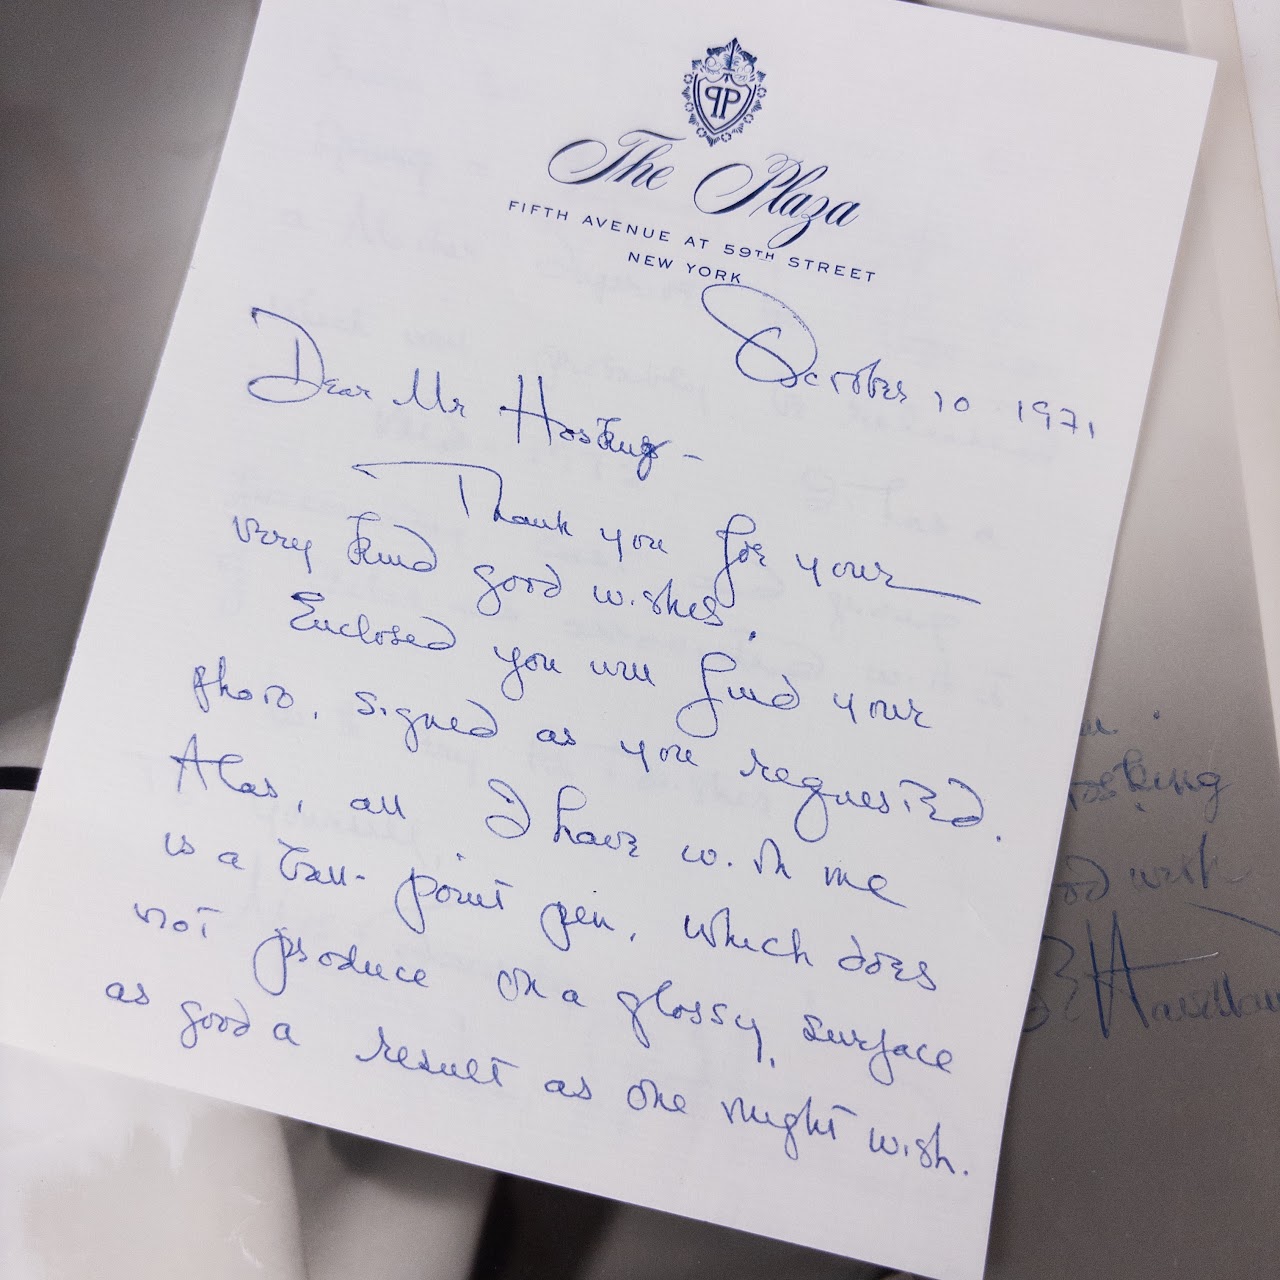 PP
The Plaza
FIFTH AVENUE AT 59TH STREET
NEW YORK
October 10 1971
Dear Mr Hosking –
Thank you for your
very kind good wishes.
Enclosed you will find your
photo, signed as you requested.
Alas, all I have with me
is a ball-point pen, which does
not produce on a glossy surface
as good a result as one might wish.
Hosking
good wish